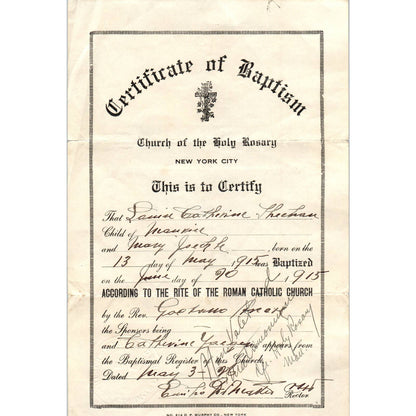 Certificate of Baptism
Church of the Holy Rosary
NEW YORK CITY
This is to Certify
That Catherine Sheehan
Child of Maurice
and Mary Joseph born on the
13 day of May 1915 was Baptized
on the June of 20 1915
ACCORDING TO THE RITE OF THE ROMAN CATHOLIC CHURCH
by the Rev. Gaetano
the Sponsors being
and Catherine as appears from
the Baptismal Register of this Church.
Dated May 3
Rector
Holy Rosary
F. MURPHY CO., NEW YORK